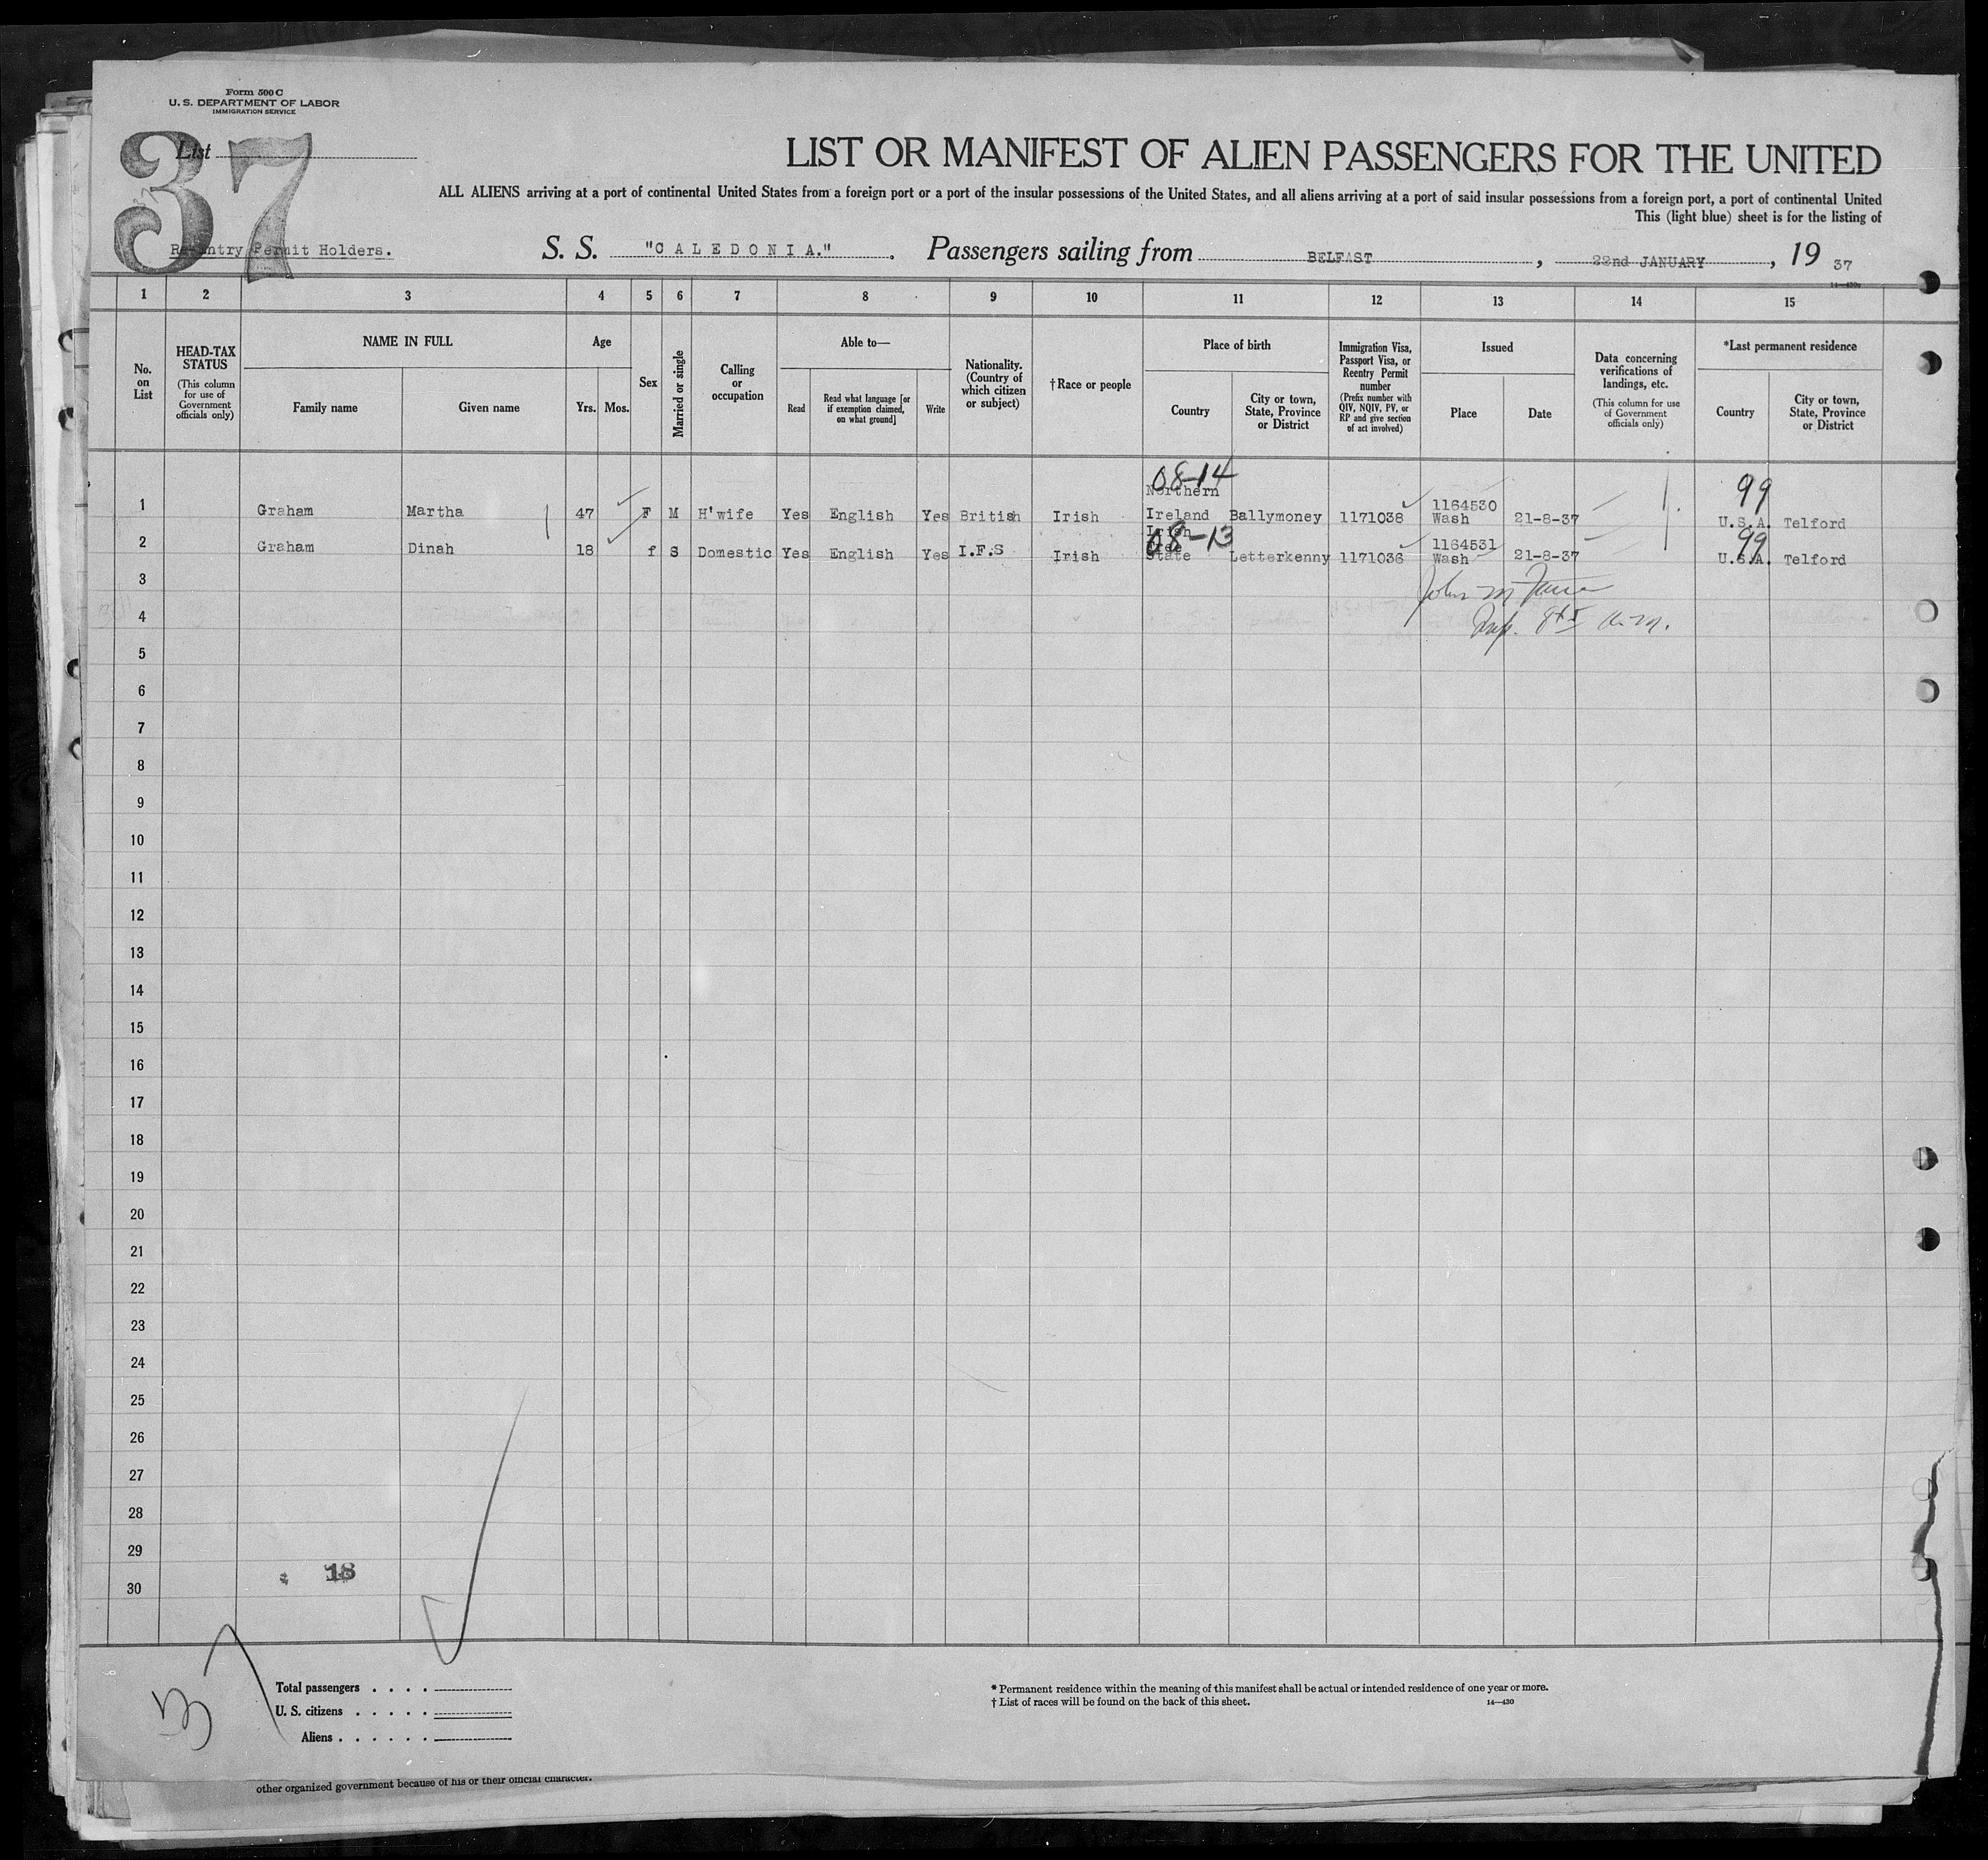 Form 500 C
U. S. DEPARTMENT OF LABOR
IMMIGRATION SERVICE
37
List
LIST OR MANIFEST OF ALIEN PASSENGERS FOR THE UNITED
ALL ALIENS arriving at a port of continental United States from a foreign port or a port of the insular possessions of the United States, and all aliens arriving at a port of said insular possessions from a foreign port, a port of continental United
This (light blue) sheet is for the listing of
Re-entry Permit Holders. S. S. "CALEDONIA." Passengers sailing from BELFAST, 22nd JANUARY, 19 37
14—430a
1 2 3 4 5 6 7 8 9 10 11 12 13 14 15
No. on List
HEAD-TAX STATUS
(This column for use of Government officials only)
NAME IN FULL
Family name Given name
Age
Yrs. Mos.
Sex
Married or single
Calling or occupation
Able to—
Read
Read what language [or if exemption claimed, on what ground]
Write
Nationality. (Country of which citizen or subject)
†Race or people
Place of birth
Country
City or town, State, Province or District
Immigration Visa, Passport Visa, or Reentry Permit number
(Prefix number with QIV, NQIV, PV, or RP and give section of act involved)
Issued
Place Date
Data concerning verifications of landings, etc.
(This column for use of Government officials only)
*Last permanent residence
Country
City or town, State, Province or District
08-14 99
Northern 1164530
1 Graham Martha 47 F M H'wife Yes English Yes British Irish Ireland Ballymoney 1171038 Wash 21-8-37 U.S.A. Telford
Irish 08-13 1164531 99
2 Graham Dinah 18 f S Domestic Yes English Yes I.F.S Irish State Letterkenny 1171036 Wash 21-8-37 U.S.A. Telford
3
John M
4
Insp.
5
6
7
8
9
10
11
12
13
14
15
16
17
18
19
20
21
22
23
24
25
26
27
28
29
18
30
Total passengers . . . .
U. S. citizens . . . . .
Aliens . . . . . .
* Permanent residence within the meaning of this manifest shall be actual or intended residence of one year or more.
† List of races will be found on the back of this sheet. 14—430
other organized government because of his or their official character.